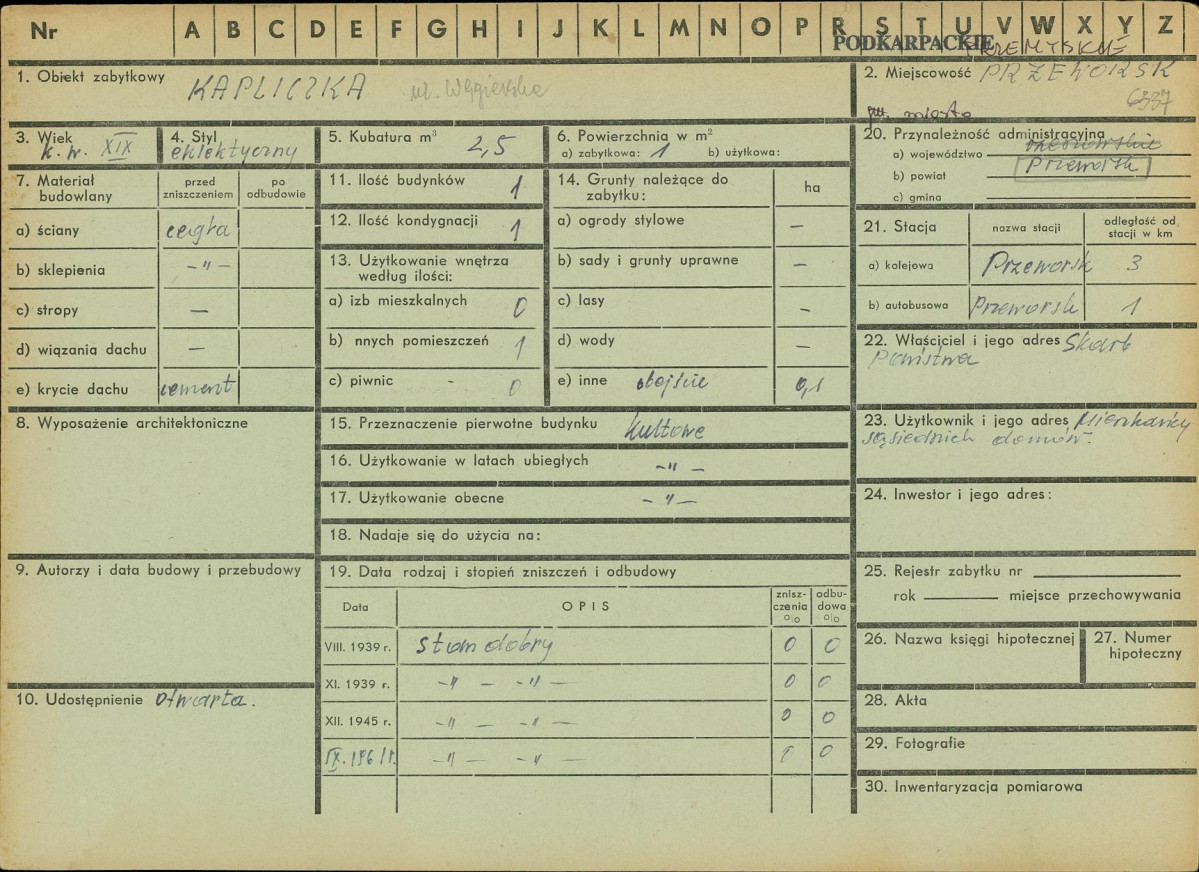 Nr A B C D E F G H I J K L M N O P R S T U V W X Y Z
PODKARPACKIE
PRZEMYSKIE
1. Obiekt zabytkowy KAPLICZKA ul. Węgierska
2. Miejscowość PRZEWORSK
6337
miasto
3. Wiek k. w. XIX
4. Styl eklektyczny
5. Kubatura m³ 2,5
6. Powierzchnia w m²
a) zabytkowa: 1 b) użytkowa:
20. Przynależność administracyjna
a) województwo rzeszowskie
b) powiat Przeworsk
c) gmina
7. Materiał budowlany
przed zniszczeniem
po odbudowie
a) ściany cegła
b) sklepienia -"-
c) stropy —
d) wiązania dachu —
e) krycie dachu cement
11. Ilość budynków 1
12. Ilość kondygnacji 1
13. Użytkowanie wnętrza
według ilości:
a) izb mieszkalnych 0
b) nnych pomieszczeń 1
c) piwnic - 0
14. Grunty należące do
zabytku:
ha
a) ogrody stylowe —
b) sady i grunty uprawne —
c) lasy —
d) wody —
e) inne obejście 0,1
21. Stacja
nazwa stacji
odległość od
stacji w km
a) kolejowa Przeworsk 3
b) autobusowa Przeworsk 1
22. Właściciel i jego adres Skarb
Państwa
8. Wyposażenie architektoniczne
15. Przeznaczenie pierwotne budynku kultowe
16. Użytkowanie w latach ubiegłych -"-
17. Użytkowanie obecne -"-
18. Nadaje się do użycia na:
23. Użytkownik i jego adres Mieszkańcy
sąsiednich domów.
24. Inwestor i jego adres:
9. Autorzy i data budowy i przebudowy
19. Data rodzaj i stopień zniszczeń i odbudowy
Data
OPIS
znisz-
czenia
o|o
odbu-
dowa
o|o
VIII. 1939 r. stan dobry 0 0
XI. 1939 r. -"- -"- 0 0
XII. 1945 r. -"- -"- 0 0
IX. 1961 r. -"- -"- 0 0
10. Udostępnienie Otwarta.
25. Rejestr zabytku nr
rok miejsce przechowywania
26. Nazwa księgi hipotecznej
27. Numer
hipoteczny
28. Akta
29. Fotografie
30. Inwentaryzacja pomiarowa